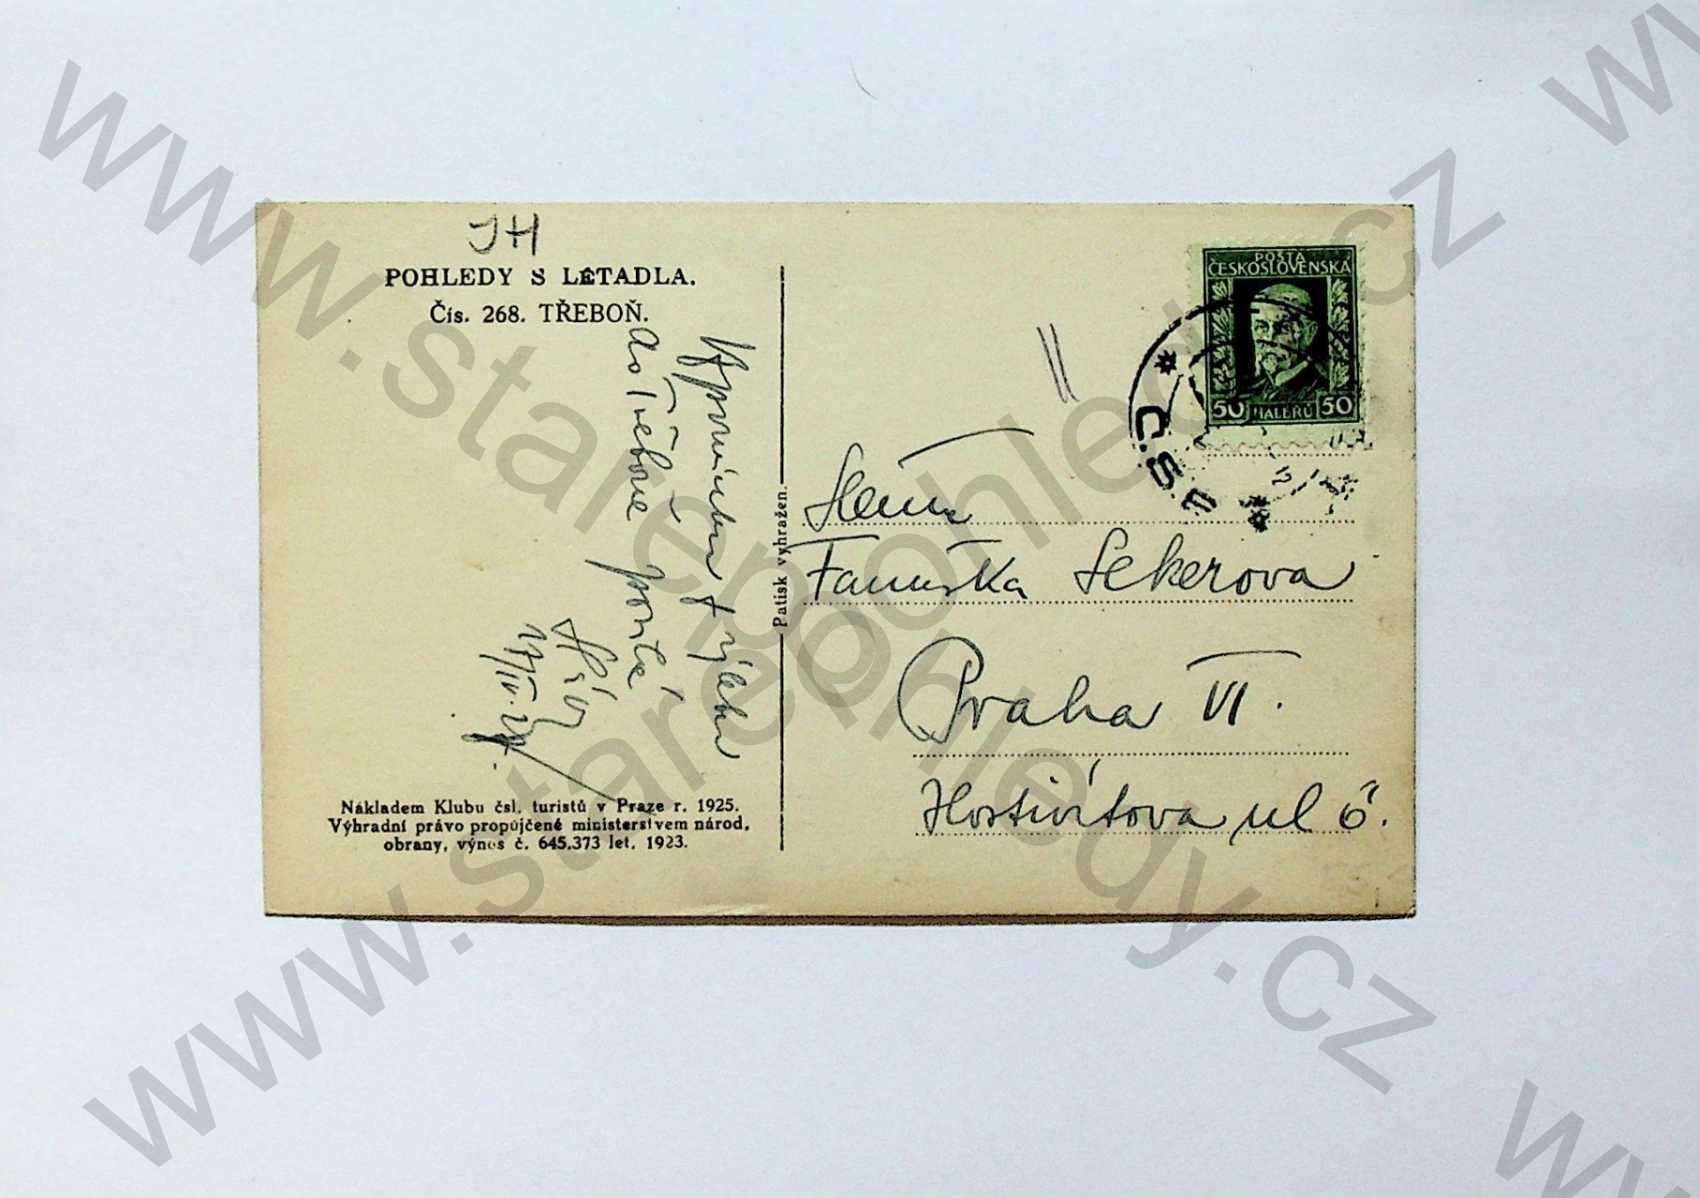 JH
POHLEDY S LETADLA.
Čís. 268. TŘEBOŇ.
Vzpomínku z výletu
do Třeboně posílá
17/IV.
Nákladem Klubu čsl. turistů v Praze r. 1925.
Výhradní právo propůjčené ministerstvem národ.
obrany, výnos č. 645.373 let. 1923.
Patisk vyhražen.
POŠTA
ČESKOSLOVENSKÁ
50 HALÉŘŮ 50
Č.S.P.
Slečna
Fanuška Sekerova
Praha VI.
Hostivítova ul 6.
www.starepohledy.cz
www.starepohledy.cz